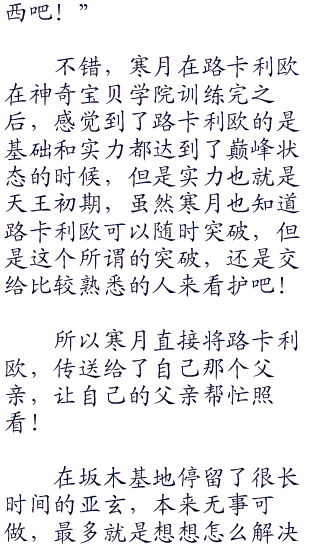 西吧！”
不错，寒月在路卡利欧
在神奇宝贝学院训练完之
后，感觉到了路卡利欧的是
基础和实力都达到了巅峰状
态的时候，但是实力也就是
天王初期，虽然寒月也知道
路卡利欧可以随时突破，但
是这个所谓的突破，还是交
给比较熟悉的人来看护吧！
所以寒月直接将路卡利
欧，传送给了自己那个父
亲，让自己的父亲帮忙照
看！
在坂木基地停留了很长
时间的亚玄，本来无事可
做，最多就是想想怎么解决